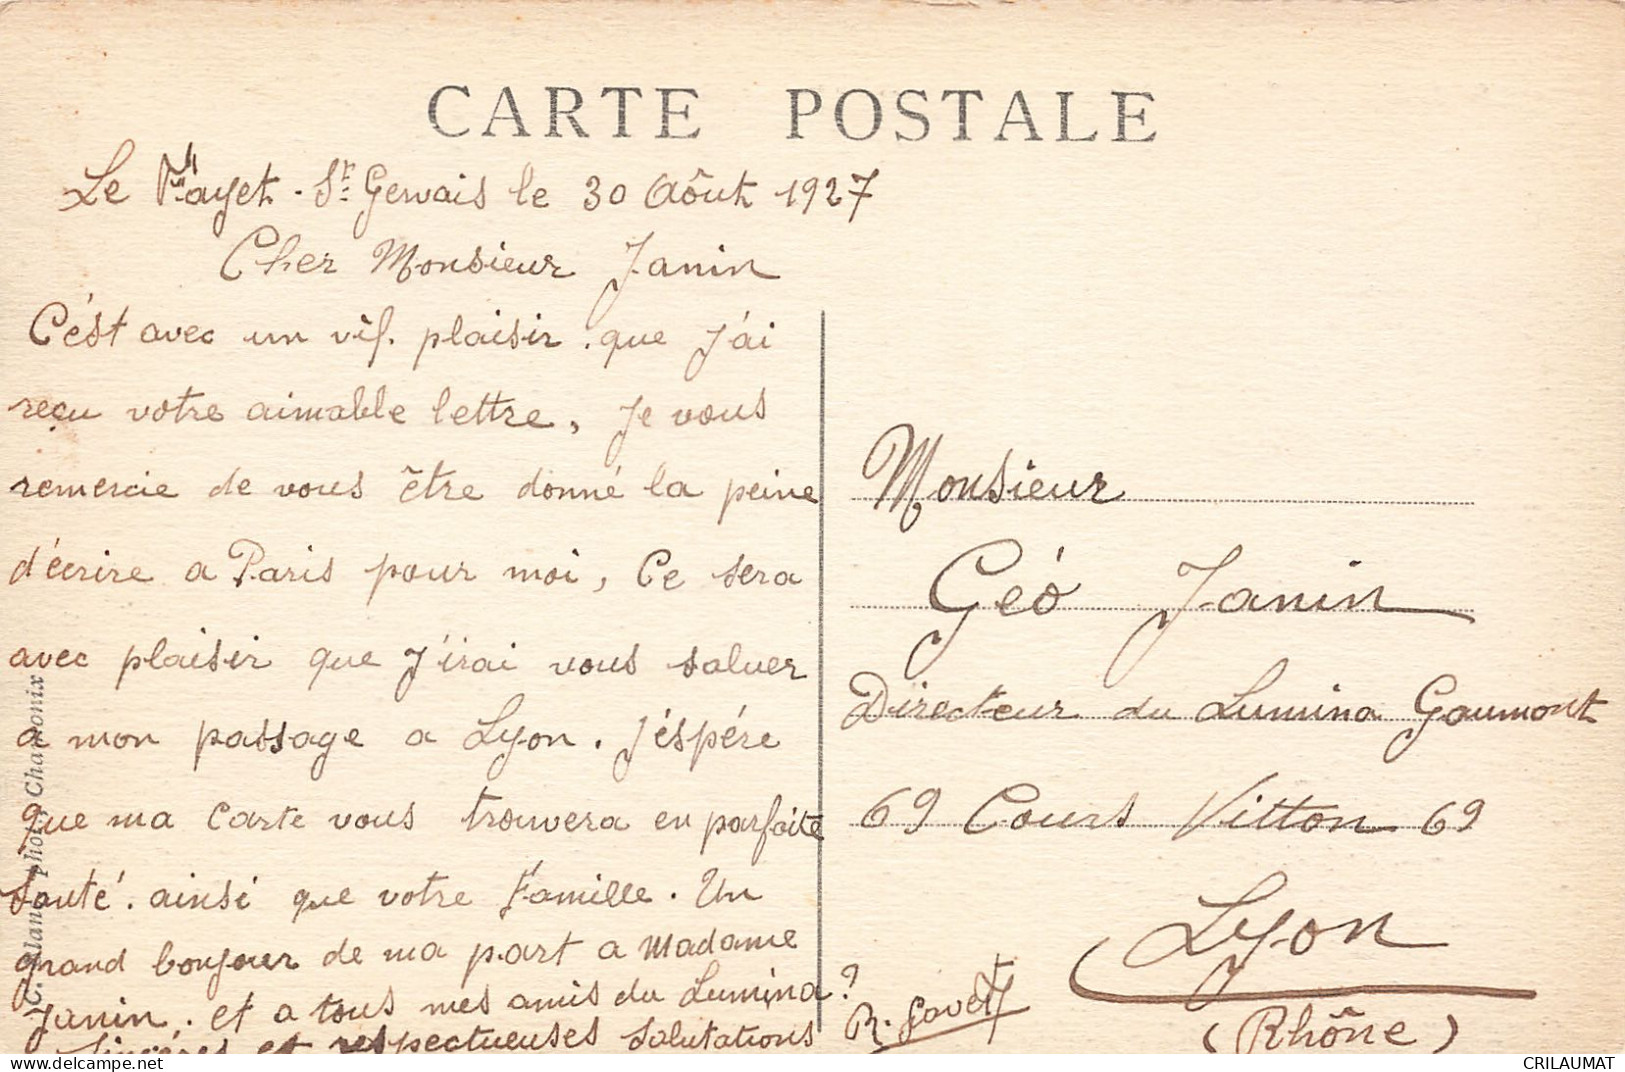 CARTE POSTALE
Le Fayet - St Gervais le 30 Août 1927
Cher Monsieur Janin
C'ést avec un vif. plaisir. que J'ai
reçu votre aimable lettre, Je vous
remercie de vous être donné la peine
d'écrire a Paris pour moi, Ce sera
avec plaisir que J'irai vous saluer
a mon passage a Lyon. J'éspére
que ma carte vous trouvera en parfaite
Santé. ainsi que votre Famille. Un
grand bonjour de ma part a Madame
Janin. et a tous mes amis du Lumina?
Sincéres et respectueuses salutations
R.
Monsieur
Géo Janin
Directeur du Lumina Gaumont
69 Cours Vitton 69
Lyon
(Rhône)
phot. Chamonix
www.delcampe.net
CRILAUMAT